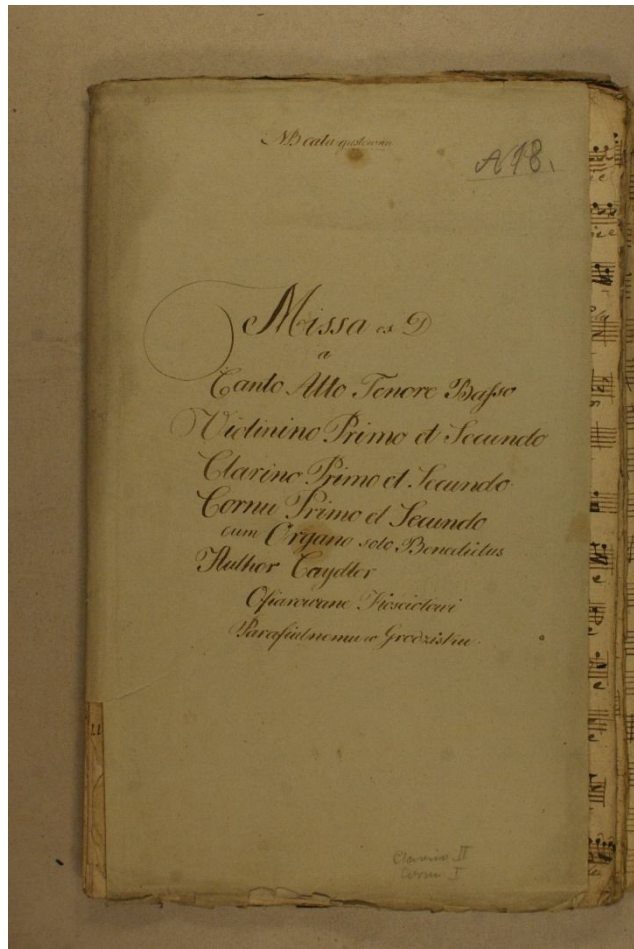 NB cała
A 18.
Missa ex D
a
Canto Alto Tenore Basso
Violinino Primo et Secundo
Clarino Primo et Secundo
Cornu Primo et Secundo
cum Organo solo Benedictus
Author Caydler
Ofiarowane Kosciołowi
Parafialnemu w Grodzisku
Clarino II
Cornu I